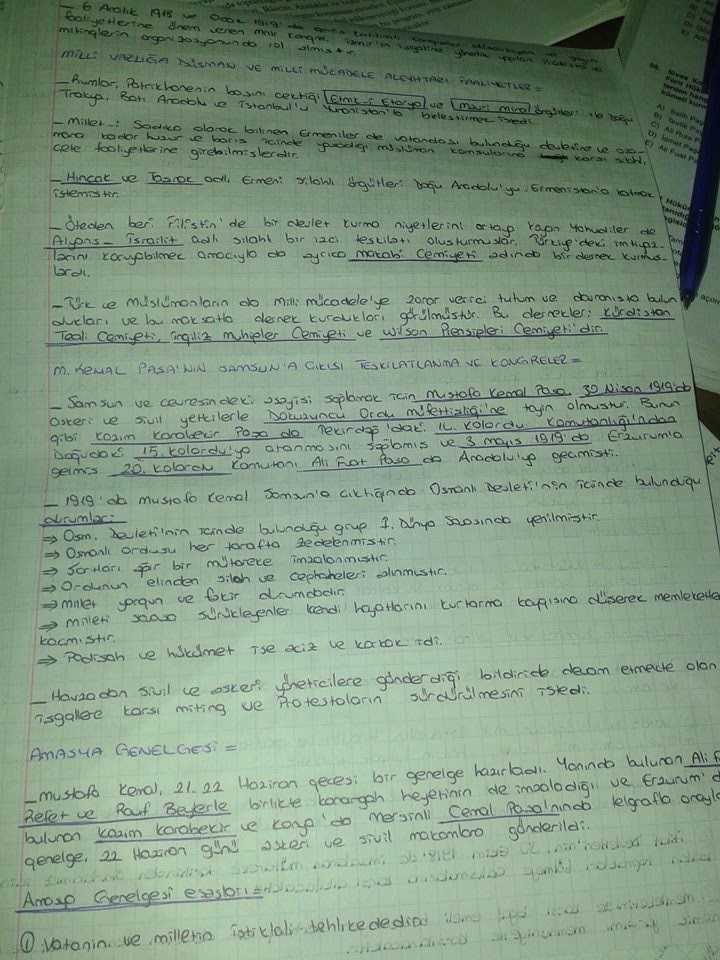 _ 6 Aralık 1918 ve Ocak 1919'da
faaliyetlerine önem veren milli kongre, İzmir'in işgaline yönelik yapılan
mitinglerin organizasyonunda rol almıştır.
MİLLİ VARLIĞA DÜŞMAN VE MİLLİ MÜCADELE ALEYHTARI FAALİYETLER =
_ Rumlar, Patrikhanenin başını çektiği Etnik-i Eterya ve Mavri Mira örgütleri ile Doğu
Trakya, Batı Anadolu ve İstanbul'u Yunanistan'la birleştirmek istedi.
_ Millet-i Sadıka olarak bilinen Ermeniler de vatandaşı bulunduğu devletine ve o za-
mana kadar huzur ve barış içinde yaşadığı müslüman komşularına karşı silahlı
çete faaliyetlerine girebilmişlerdir.
_ Hınçak ve Taşnak adlı Ermeni silahlı örgütleri Doğu Anadolu'yu Ermenistan'a katmak
istemiştir.
_ Öteden beri Filistin'de bir devlet kurma niyetlerini ortaya koyan Yahudiler de
Alyans-israilit adlı silahlı bir izci teşkilatı oluşturmuşlar, Türkiye'deki imtiyaz-
larını koruyabilmek amacıyla da ayrıca makabi Cemiyeti adında bir dernek kurmuş-
lardı.
_ Türk ve Müslümanların da Milli mücadele'ye zarar verici tutum ve davranışta bulun
dukları ve bu maksatla dernek kurdukları görülmüştür. Bu dernekler; kürdistan
Teali Cemiyeti, ingiliz muhipler Cemiyeti ve wilson Prensipleri Cemiyeti'dir.
M. KEMAL PAŞA'NIN SAMSUN'A ÇIKIŞI TEŞKİLATLANMA VE KONGRELER =
_ Samsun ve çevresindeki asayişi sağlamak için Mustafa Kemal Paşa, 30 Nisan 1919'da
askeri ve sivil yetkilerle Dokuzuncu Ordu müfettişliği'ne tayin olmuştur. Bunun
gibi kazım karabekir Paşa da Tekirdağ'daki 14. kolordu komutanlığı'ndan
Doğudaki 15. kolordu'ya atanmasını sağlamış ve 3 mayıs 1919'da Erzurum'a
gelmiş 20. kolordu komutanı Ali Fuat Paşa da Anadolu'ya geçmişti.
_ 1919'da mustafa Kemal Samsun'a çıktığında Osmanlı Devleti'nin içinde bulunduğu
durumlar:
⇒ Osm. Devleti'nin içinde bulunduğu grup I. Dünya Savaşında yenilmiştir.
⇒ Osmanlı ordusu her tarafta zedelenmiştir.
⇒ Şartları ağır bir mütareke imzalanmıştır.
⇒ Ordunun elinden silah ve cephaneleri alınmıştır.
⇒ millet yorgun ve fakir durumdadır.
⇒ milleti savaşa sürükleyenler kendi hayatlarını kurtarma kaygısına düşerek memleketten
kaçmıştır.
⇒ Padişah ve hükümet ise aciz ve korkak idi.
_ Havzadan sivil ve askeri yöneticilere gönderdiği bildiride devam etmekte olan
işgallere karşı miting ve Protestoların sürdürülmesini istedi.
AMASYA GENELGESİ =
_ mustafa Kemal, 21-22 Haziran gecesi bir genelge hazırladı. Yanında bulunan Ali F
Refet ve Rauf Beylerle birlikte karargah heyetinin de imzaladığı ve Erzurum'd
bulunan kazım karabekir ve konya'da mersinli Cemal Paşa'nında telgrafla onayla
genelge, 22 Haziran günü askeri ve sivil makamlara gönderildi.
Amasya Genelgesi esasları =
① Vatanın ve milletin istiklali tehlikededir